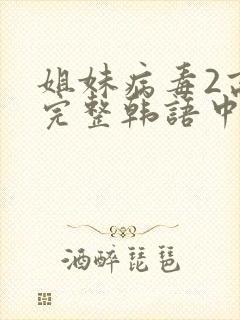 姐妹病毒2高
完整韩语中
酒醉琵琶